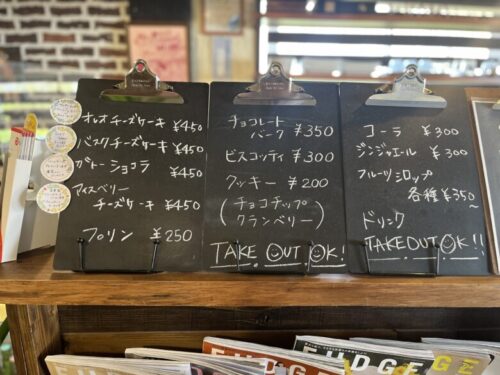 オレオチーズケーキ ¥450
バスクチーズケーキ ¥450
ガトーショコラ ¥450
マイスベリー
チーズケーキ ¥450
プリン ¥250
チョコレート
バーク ¥350
ビスコッティ ¥300
クッキー ¥200
(チョコチップ
クランベリー)
TAKE OUT OK!
コーラ ¥300
ジンジャエール ¥300
フルーツシロップ
各種 ¥350~
ドリンク
TAKEOUT OK!!
FUDGE
FUDGE